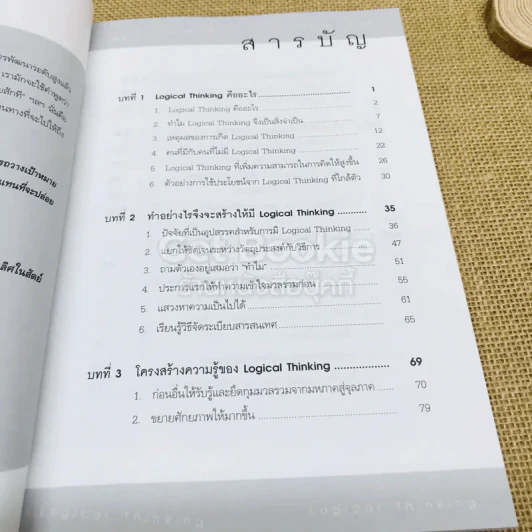 รพัฒนาระดับสูงแล้ว
เรามักจะใช้คำพูดว่า
ยสักที" ฯลฯ นั่นคือ
นทางที่จะไปให้ถึง
รถวางเป้าหมาย
แทนที่จะปล่อย
เลิศในสัตย์
สารบัญ
บทที่ 1 Logical Thinking คืออะไร 1
1. Logical Thinking คืออะไร 2
2. ทำไม Logical Thinking จึงเป็นสิ่งจำเป็น 7
3. เหตุผลของการเกิด Logical Thinking 12
4. คนที่มีกับคนที่ไม่มี Logical Thinking 22
5. Logical Thinking ที่เพิ่มความสามารถในการคิดให้สูงขึ้น 26
6. ตัวอย่างการใช้ประโยชน์จาก Logical Thinking ที่ใกล้ตัว 30
บทที่ 2 ทำอย่างไรจึงจะสร้างให้มี Logical Thinking 35
1. ปัจจัยที่เป็นอุปสรรคสำหรับการมี Logical Thinking 36
2. แยกให้ชัดเจนระหว่างวัตถุประสงค์กับวิธีการ 47
3. ถามตัวเองอยู่เสมอว่า "ทำไม" 51
4. ประการแรกให้ทำความเข้าใจมวลรวมก่อน 55
5. แสวงหาความเป็นไปได้ 61
6. เรียนรู้วิธีจัดระเบียบสารสนเทศ 65
บทที่ 3 โครงสร้างความรู้ของ Logical Thinking 69
1. ก่อนอื่นให้รับรู้และยึดกุมมวลรวมจากมหภาคสู่จุลภาค 70
2. ขยายศักยภาพให้มากขึ้น 79
Logical Thinking
Logical Thinking